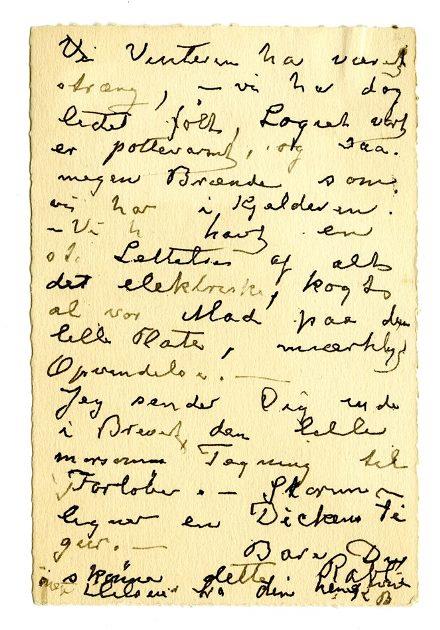 Vi Vinteren har været
stræng, – vi har dog
ledet folk, Logiet vort
er pottevarmt, og saa
megen Brænde som
vi har i Kjelderen.
– Vi h havt en
st. Lettelse af alt
det elektriske, kogt
al vor Mad paa den
lille Plate, mærkelig
Opvindelse. –
Jeg sender Dig inde
i Brevet den lille
morsomme Tegning til
Forlöber. –
ligner en Dickens fi
gur. – Bare Du
skjöner dette
Hilsen fra din